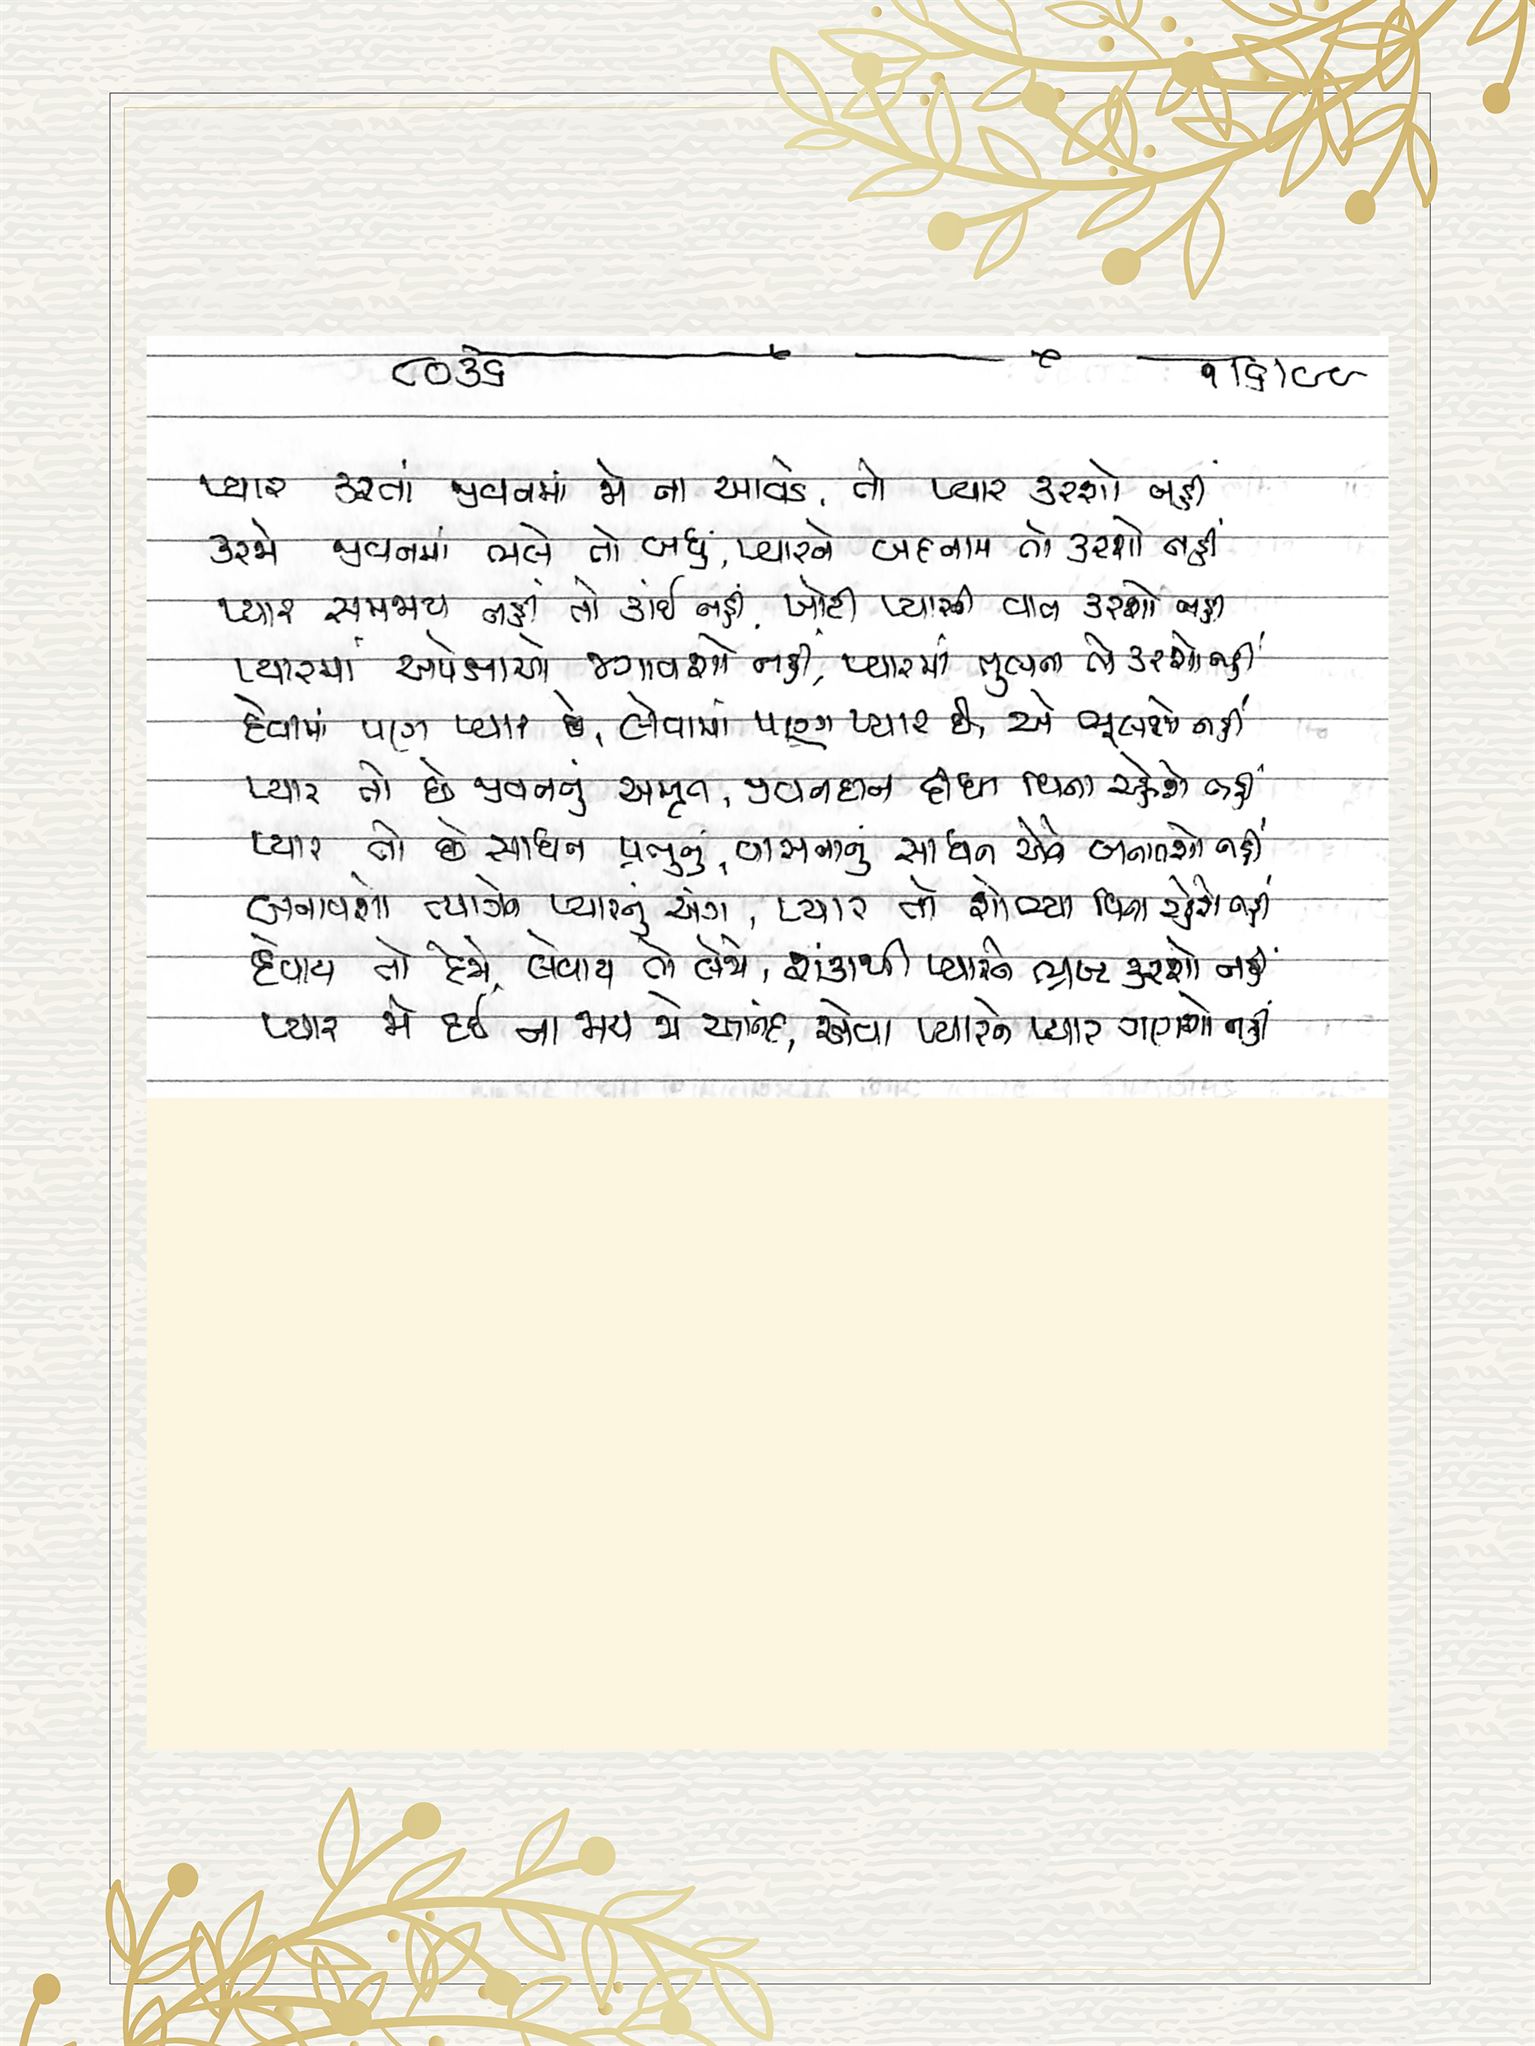 ૮૦૩૬ ૧।૬।૯૯
પ્યાર કરતાં જીવનમાં જો ના આવડે, તો પ્યાર કરશો નહીં
કરજો જીવનમાં ભલે તો બધું, પ્યારને બદનામ તો કરશો નહીં
પ્યાર સમજાય નહીં તો કાંઈ નહીં, ખોટી પ્યારની વાત કરશો નહીં
પ્યારમાં અપેક્ષાઓ જગાવશો નહીં, પ્યારમાં તુલના તો કરશો નહીં
દેવામાં પણ પ્યાર છે, લેવામાં પણ પ્યાર છે, એ ભૂલશો નહીં
પ્યાર તો છે જીવનનું અમૃત, જીવનદાન દીધા વિના રહેશે નહીં
પ્યાર તો છે સાધન પ્રભુનું, વાસનાનું સાધન એને બનાવશો નહીં
બનાવશો ત્યાગને પ્યારનું અંગ, પ્યાર તો શોભ્યા વિના રહેશે નહીં
દેવાય તો દેજો, લેવાય તો લેજો, શંકાથી પ્યારને ભ્રષ્ટ કરશો નહીં
પ્યાર જો દઈ ના જાય જો આનંદ, એવા પ્યારને પ્યાર ગણશો નહીં